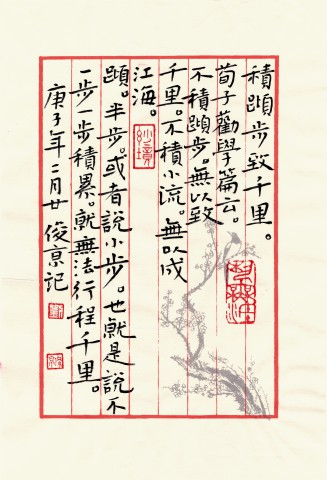 積蹞步致千里。
荀子勸學篇云。
不積蹞步。無以致
千里。不積小流。無以成
江海。
妙境
蹞。半步。或者說小步。也就是說不
一步一步積累。就無法行程千里。
庚子年二月廿 俊京記